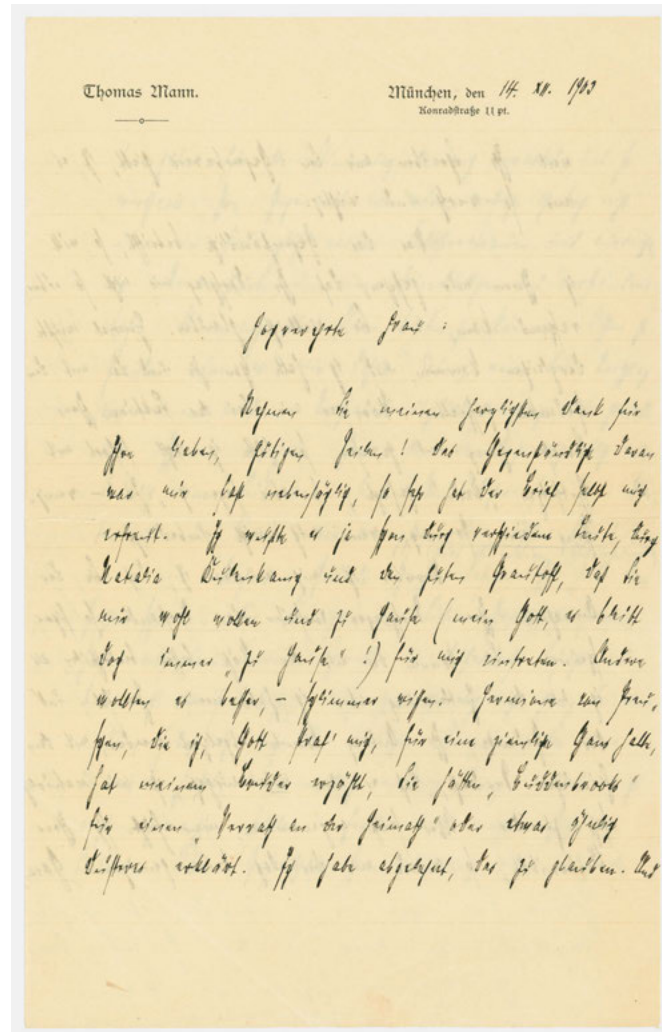 Thomas Mann.
München, den 14. XII. 1903
Konradstraße 11 pt.
Hochverehrte Frau :
Nehmen Sie meinen herzlichsten Dank für
Ihre lieben, gütigen Zeilen ! Das Gegenständliche daran
war mir fast nebensächlich, so sehr hat der Brief selbst mich
erfreut. Ich wußte es ja schon durch verschiedene Leute, durch
Natalia und den guten Grautoff, daß Sie
mir wohl wollen und zu Hause (mein Gott, es bleibt
doch immer „zu Hause“ !) für mich eintreten. Andere
wollten es besser, – schlimmer wissen. Hermione von Preu,
schen, die ich, Gott straf' mich, für eine ziemliche Gans halte,
hat meinem Bruder erzählt, Sie hätten „Buddenbrooks“
für einen „Verrath an der Heimath“ oder etwas ähnlich
Düsteres erklärt. Ich habe abgelehnt, das zu glauben. Und